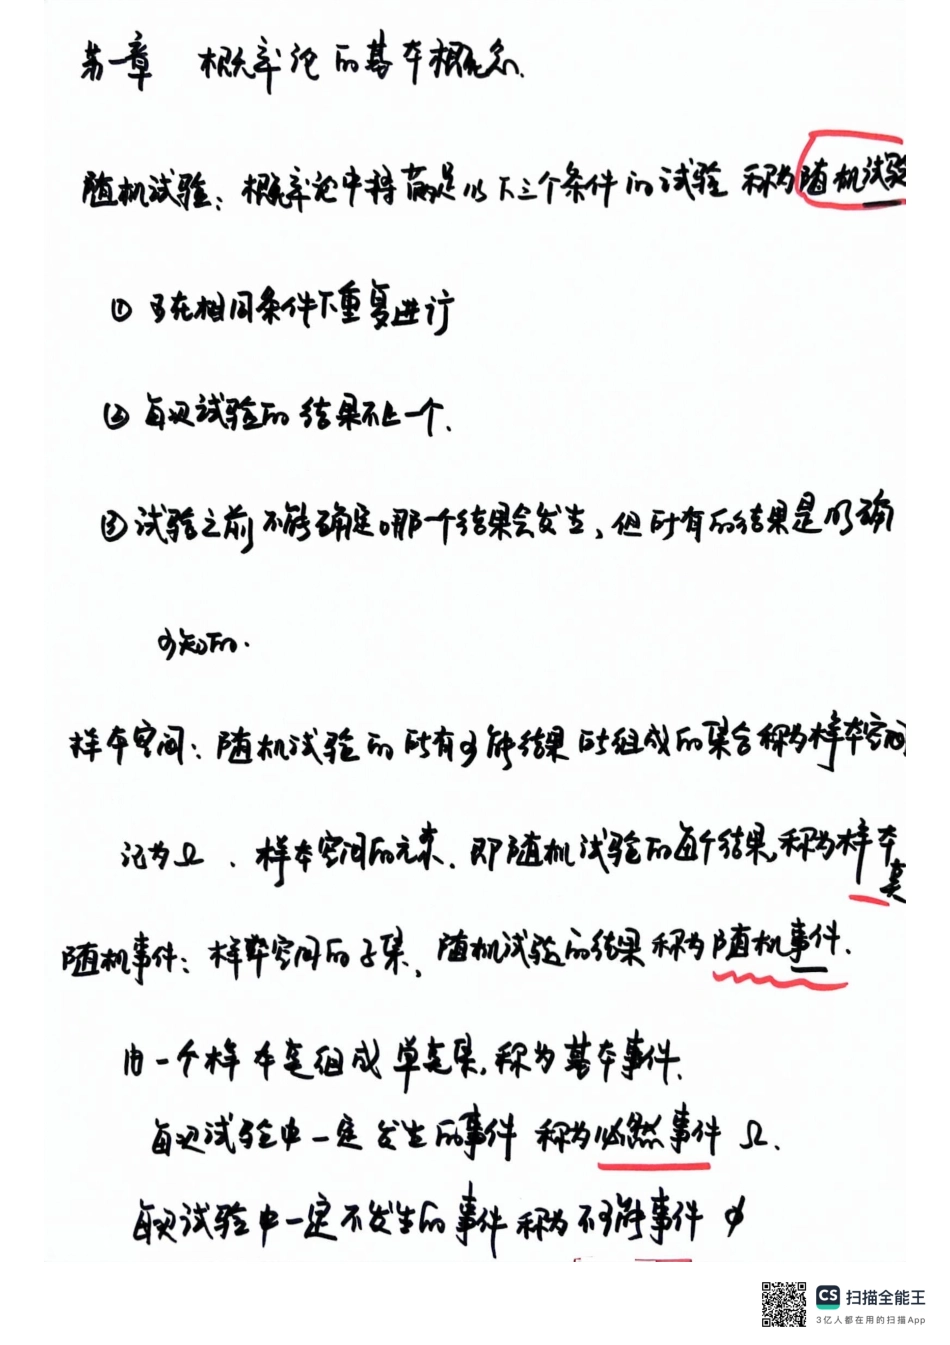 第一章 概率论的基本概念.
随机试验: 概率论中将满足以下三个条件的试验 称为随机试验
① 可在相同条件下重复进行
② 每次试验的结果不止一个.
③ 试验之前不能确定哪个结果会发生, 但所有的结果是明确
可知的.
样本空间: 随机试验的所有可能结果所组成的集合称为样本空间
记为Ω、样本空间的元素、即随机试验的每个结果,称为样本点
随机事件: 样本空间的子集、随机试验的结果称为随机事件.
由一个样本点组成单点集,称为基本事件.
每次试验中一定发生的事件 称为必然事件 Ω.
每次试验中一定不发生的事件称为不可能事件 ϕ
CS 扫描全能王
3亿人都在用的扫描App